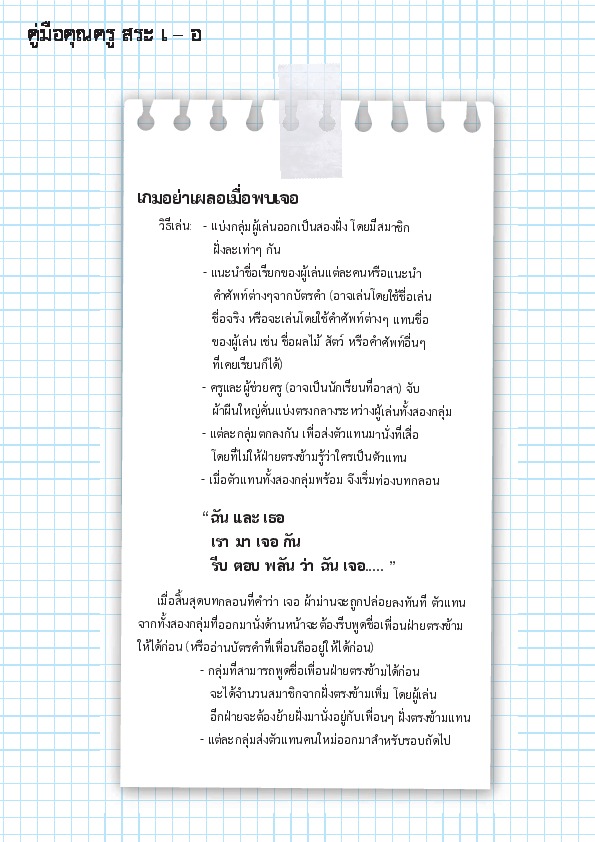 คู่มือคุณครู สระ เ – อ
เกมอย่าเผลอเมื่อพบเจอ
วิธีเล่น: - แบ่งกลุ่มผู้เล่นออกเป็นสองฝั่ง โดยมีสมาชิก
ฝั่งละเท่าๆ กัน
- แนะนำชื่อเรียกของผู้เล่นแต่ละคนหรือแนะนำ
คำศัพท์ต่างๆจากบัตรคำ (อาจเล่นโดยใช้ชื่อเล่น
ชื่อจริง หรือจะเล่นโดยใช้คำศัพท์ต่างๆ แทนชื่อ
ของผู้เล่น เช่น ชื่อผลไม้ สัตว์ หรือคำศัพท์อื่นๆ
ที่เคยเรียนก็ได้)
- ครูและผู้ช่วยครู (อาจเป็นนักเรียนที่อาสา) จับ
ผ้าผืนใหญ่คั่นแบ่งตรงกลางระหว่างผู้เล่นทั้งสองกลุ่ม
- แต่ละกลุ่มตกลงกัน เพื่อส่งตัวแทนมานั่งที่เสื่อ
โดยที่ไม่ให้ฝ่ายตรงข้ามรู้ว่าใครเป็นตัวแทน
- เมื่อตัวแทนทั้งสองกลุ่มพร้อม จึงเริ่มท่องบทกลอน
“ ฉัน และ เธอ
เรา มา เจอ กัน
รีบ ตอบ พลัน ว่า ฉัน เจอ..... ”
เมื่อสิ้นสุดบทกลอนที่คำว่า เจอ ผ้าม่านจะถูกปล่อยลงทันที ตัวแทน
จากทั้งสองกลุ่มที่ออกมานั่งด้านหน้าจะต้องรีบพูดชื่อเพื่อนฝ่ายตรงข้าม
ให้ได้ก่อน (หรืออ่านบัตรคำที่เพื่อนถืออยู่ให้ได้ก่อน)
- กลุ่มที่สามารถพูดชื่อเพื่อนฝ่ายตรงข้ามได้ก่อน
จะได้จำนวนสมาชิกจากฝั่งตรงข้ามเพิ่ม โดยผู้เล่น
อีกฝ่ายจะต้องย้ายฝั่งมานั่งอยู่กับเพื่อนๆ ฝั่งตรงข้ามแทน
- แต่ละกลุ่มส่งตัวแทนคนใหม่ออกมาสำหรับรอบถัดไป